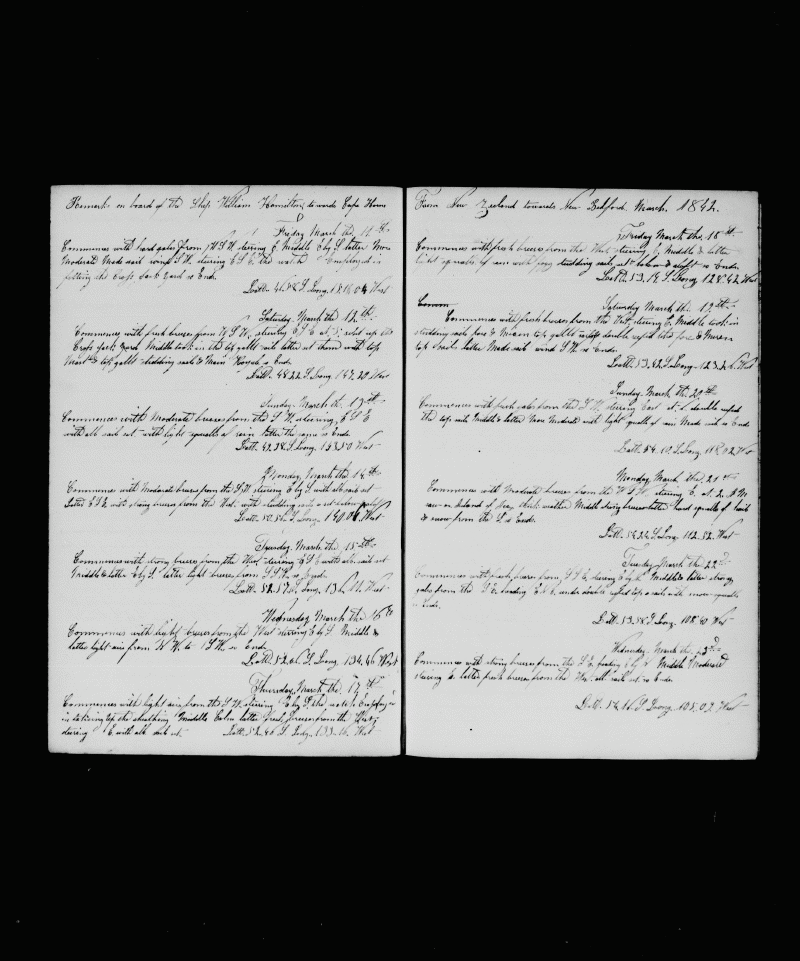 Remarks on board of the Ship William Hamilton towards Cape Horn
Friday March the 11th
Commences with hard gales from W S W steering E Middle E by S latter More
Moderate Made sail wind S W steering E S E the watch Employed in
fitting the Cross Jack Yard so Ends
Latt. Long. West
Saturday March the 12th
Commences with fresh breeze from W S W steering E S E at sent up the
Cross Jack Yard Middle took in the top gallt sails latter set them with top
Mast & top gallt studding sails & Main so Ends
Latt 48.22 S Long 147.20 West
Sunday March the 13th
Commences with Moderate breeze from the S W steering E S E
with all sail set with light squalls of rain latter the same so Ends
Latt. 49.38 S Long. 143.50 West
Monday March the 14th
Commences with Moderate breeze from the S W steering E by S with all sail set
Latter E S E with strong breeze from the West with studding sails set
Latt. 50. S Long. 140.06 West
Tuesday March the 15th
Commences with strong breeze from the West steering E S E with all sail set
Middle & latter E by S latter light breeze from S S W so Ends
Latt. 52.17 S Long. West
Wednesday March the 16th
Commences with light breeze from the West steering E by S Middle &
latter light airs from N W to S W so Ends
Latt. 52.06 S Long. 134.46 West
Thursday March the 17th
Commences with light airs from the S W steering E by S the watch Employed
in the sheathing Middle Calm latter fresh breeze from the West
steering E with all sail set. Latt. 52.46 S Long. 133.16 West
From New Zealand towards New Bedford. March. 1842.
Friday March the 18th
Commences with fresh breeze from the West steering E Middle & latter
light squalls of rain with studding sails set below & aloft so Ends
Latt. 53.18 S Long 128.42 West
Saturday March the 19th
Commences with fresh breeze from the West, steering E Middle took in
studding sails fore & Main top gallt sails double reefed the fore & Mizen
top sails latter Made sail wind S W so Ends
Latt 53.42 S Long. 123.2 West
Sunday March the 20th
Commences with fresh gales from the S W steering East at double reefed
the top sails Middle & latter More Moderate with light squalls of rain Made sail so Ends
Latt. 54.10 S Long. 118.02 West
Monday March the 21st
Commences with Moderate breeze from the W S W steering E. at 2 P M
saw an Island of Ice, thick weather Middle strong breeze latter hard squalls of hail
& snow from the S so Ends.
Latt. 54.24 S Long 112.52 West
Tuesday March the 22d
Commences with fresh breeze from S S E, steering E by N Middle & latter strong
gales from the S E, heading E N E, under double reefed top sails with snow squalls
so Ends.
Latt. 53.58 S Long. 108.40 West
Wednesday March the 23d
Commences with strong breeze from the S E heading E by N Middle Moderate
steering E latter fresh breeze from the West all sail set so Ends
Latt. 54.16 S Long. 105.02 West